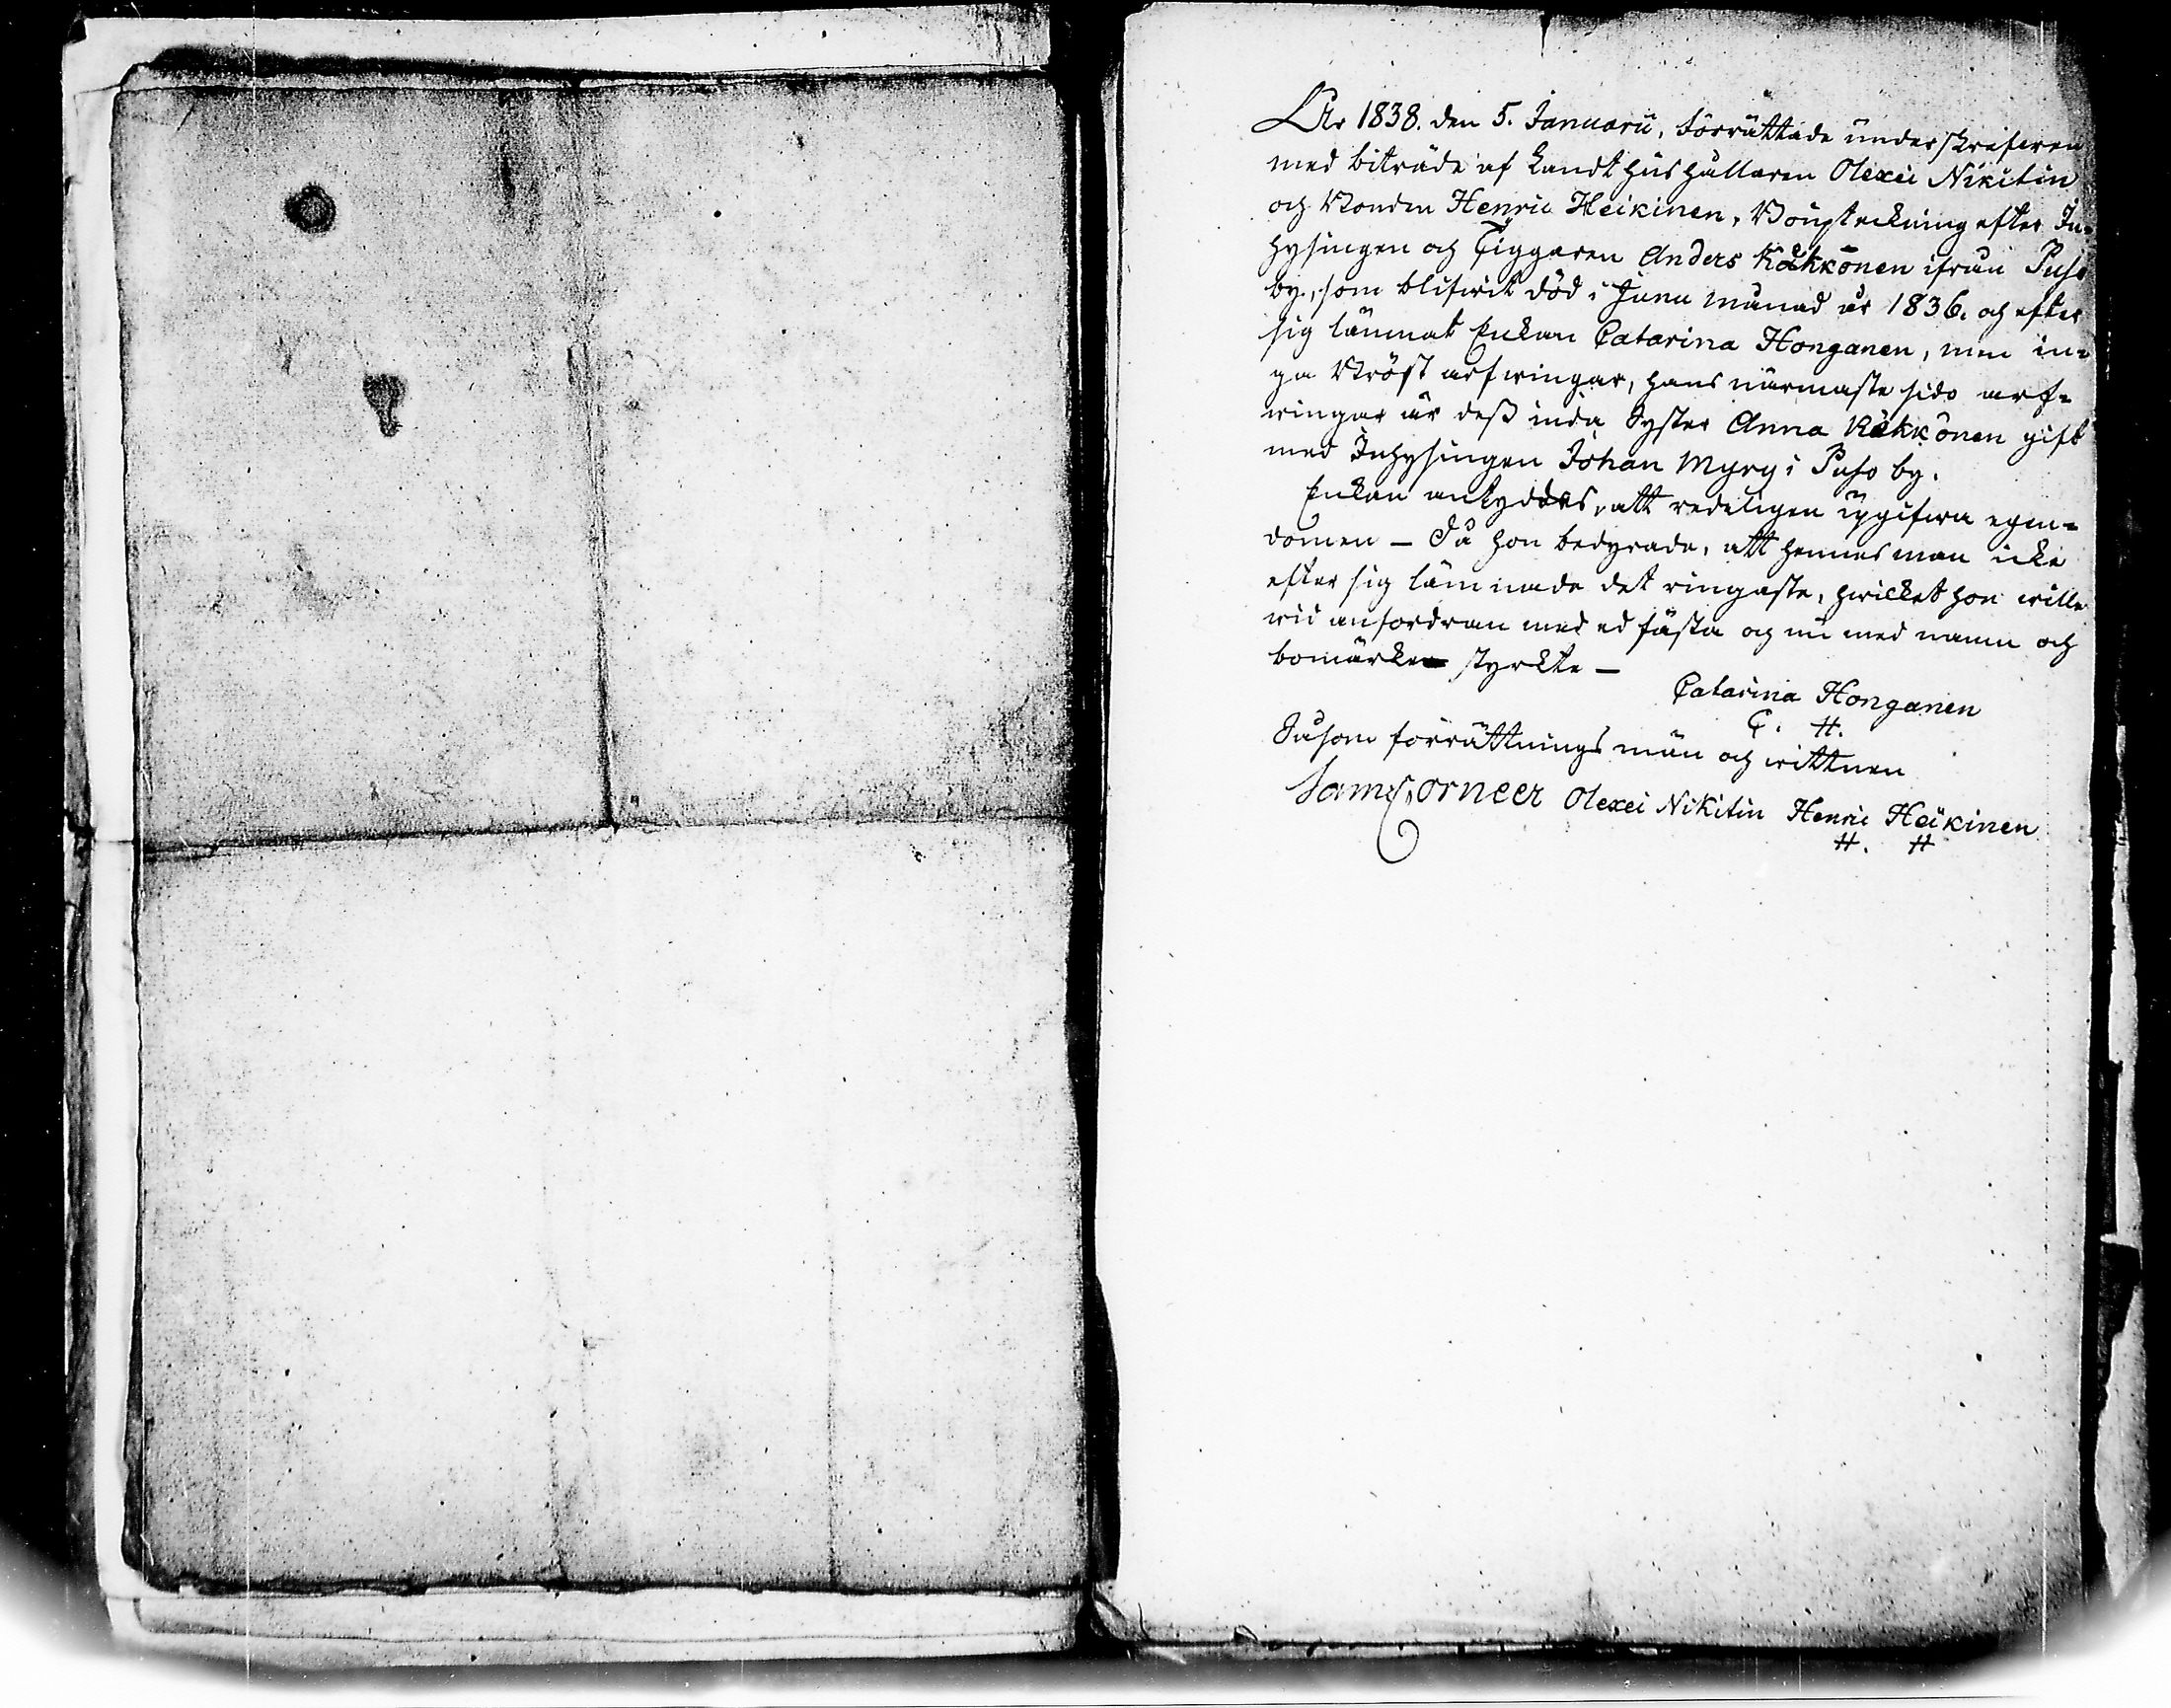 År 1838. den 5. Januarii, förrättade underskrifwen
med biträde af Landthushållaren Olexei Nikitin
och Bonden Henric Heikinen, Bouptekning efter In-
hysingen och Tiggaren Anders Käkkönen ifrån Puso
by, som blifwit död i Junii månad år 1836. och efter
sig lämnat Enkan Catarina Honganen, men in-
ga Bröst arfwingar, hans närmaste sido arf-
wingar är dess enda Syster Anna Käkkönen gift
med Inhysingen Johan Myry i Puso by.
Enkan antyddes, att redeligen uppgifwa egen-
domen – Då hon bedyrade, att hennes man icke
efter sig lämnade det ringaste, hwilket hon wille
wid anfordran med ed fästa och nu med namn och
bomärke styrkte –
Catarina Honganen
C. H.
Såsom förrättnings män och wittnen
Sam Corneer Olexei Nikitin Henric Heikinen
H. H